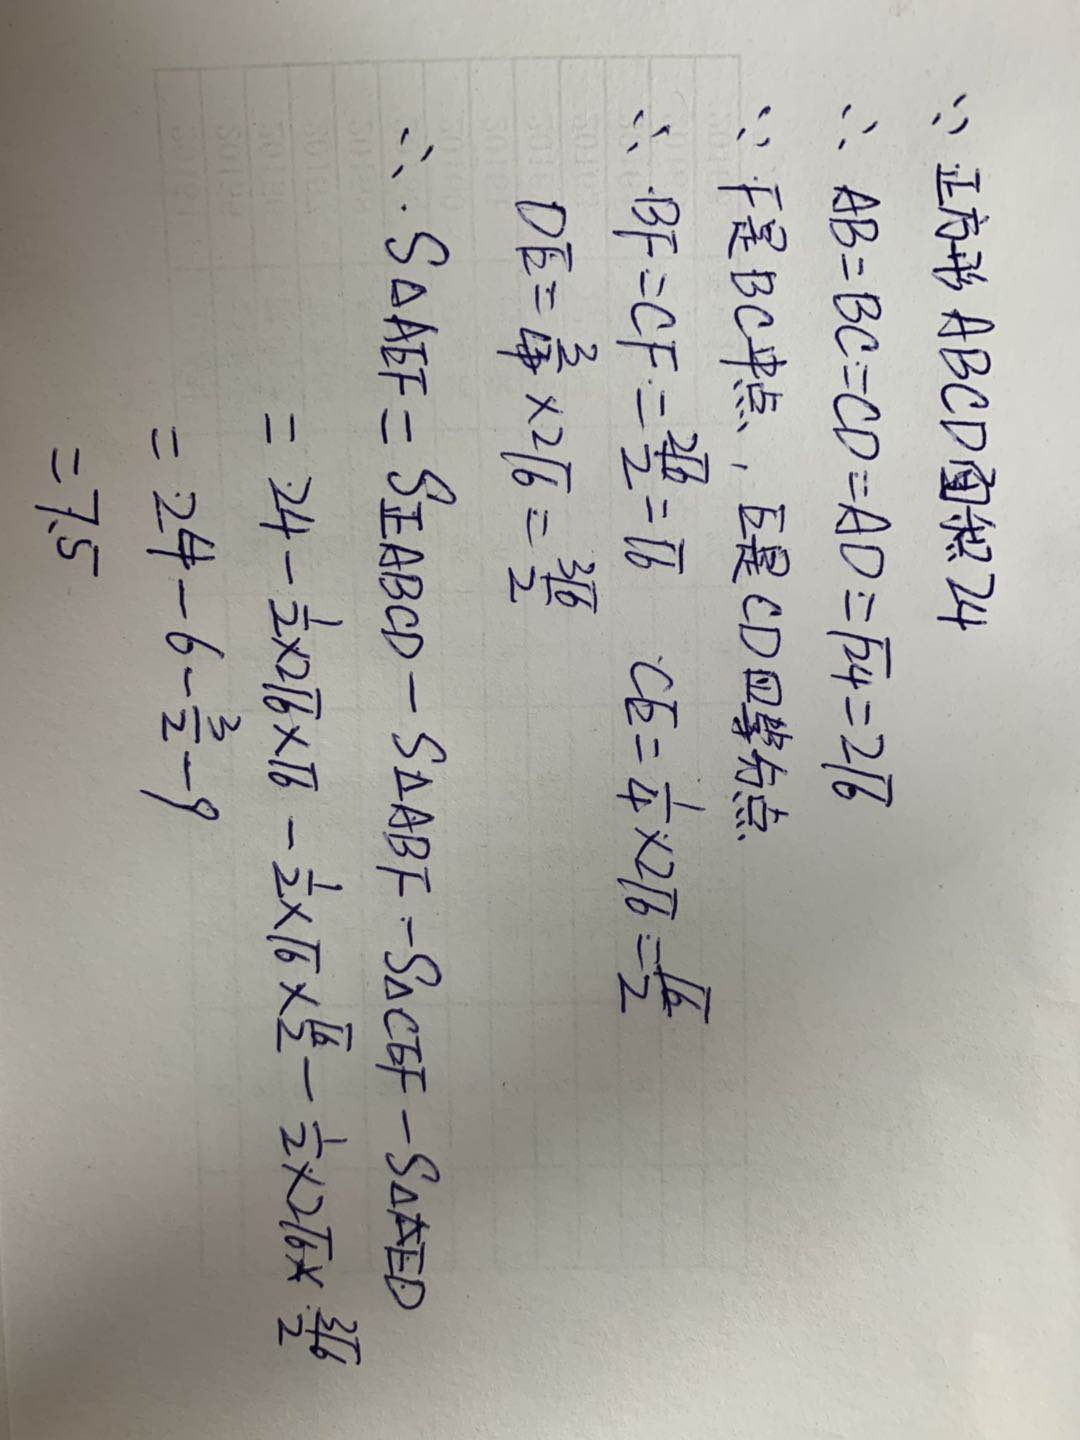 ∵ 正方形ABCD面积24
∴ AB=BC=CD=AD=√24=2√6
∵ F是BC中点,E是CD四等分点
∴ BF=CF=2√6/2=√6 CE=1/4×2√6=√6/2
DE=3/4×2√6=3√6/2
∴ S△AEF=S正ABCD-S△ABF-S△CEF-S△AED
=24-1/2×2√6×√6-1/2×√6×√6/2-1/2×2√6×3√6/2
=24-6-3/2-9
=7.5